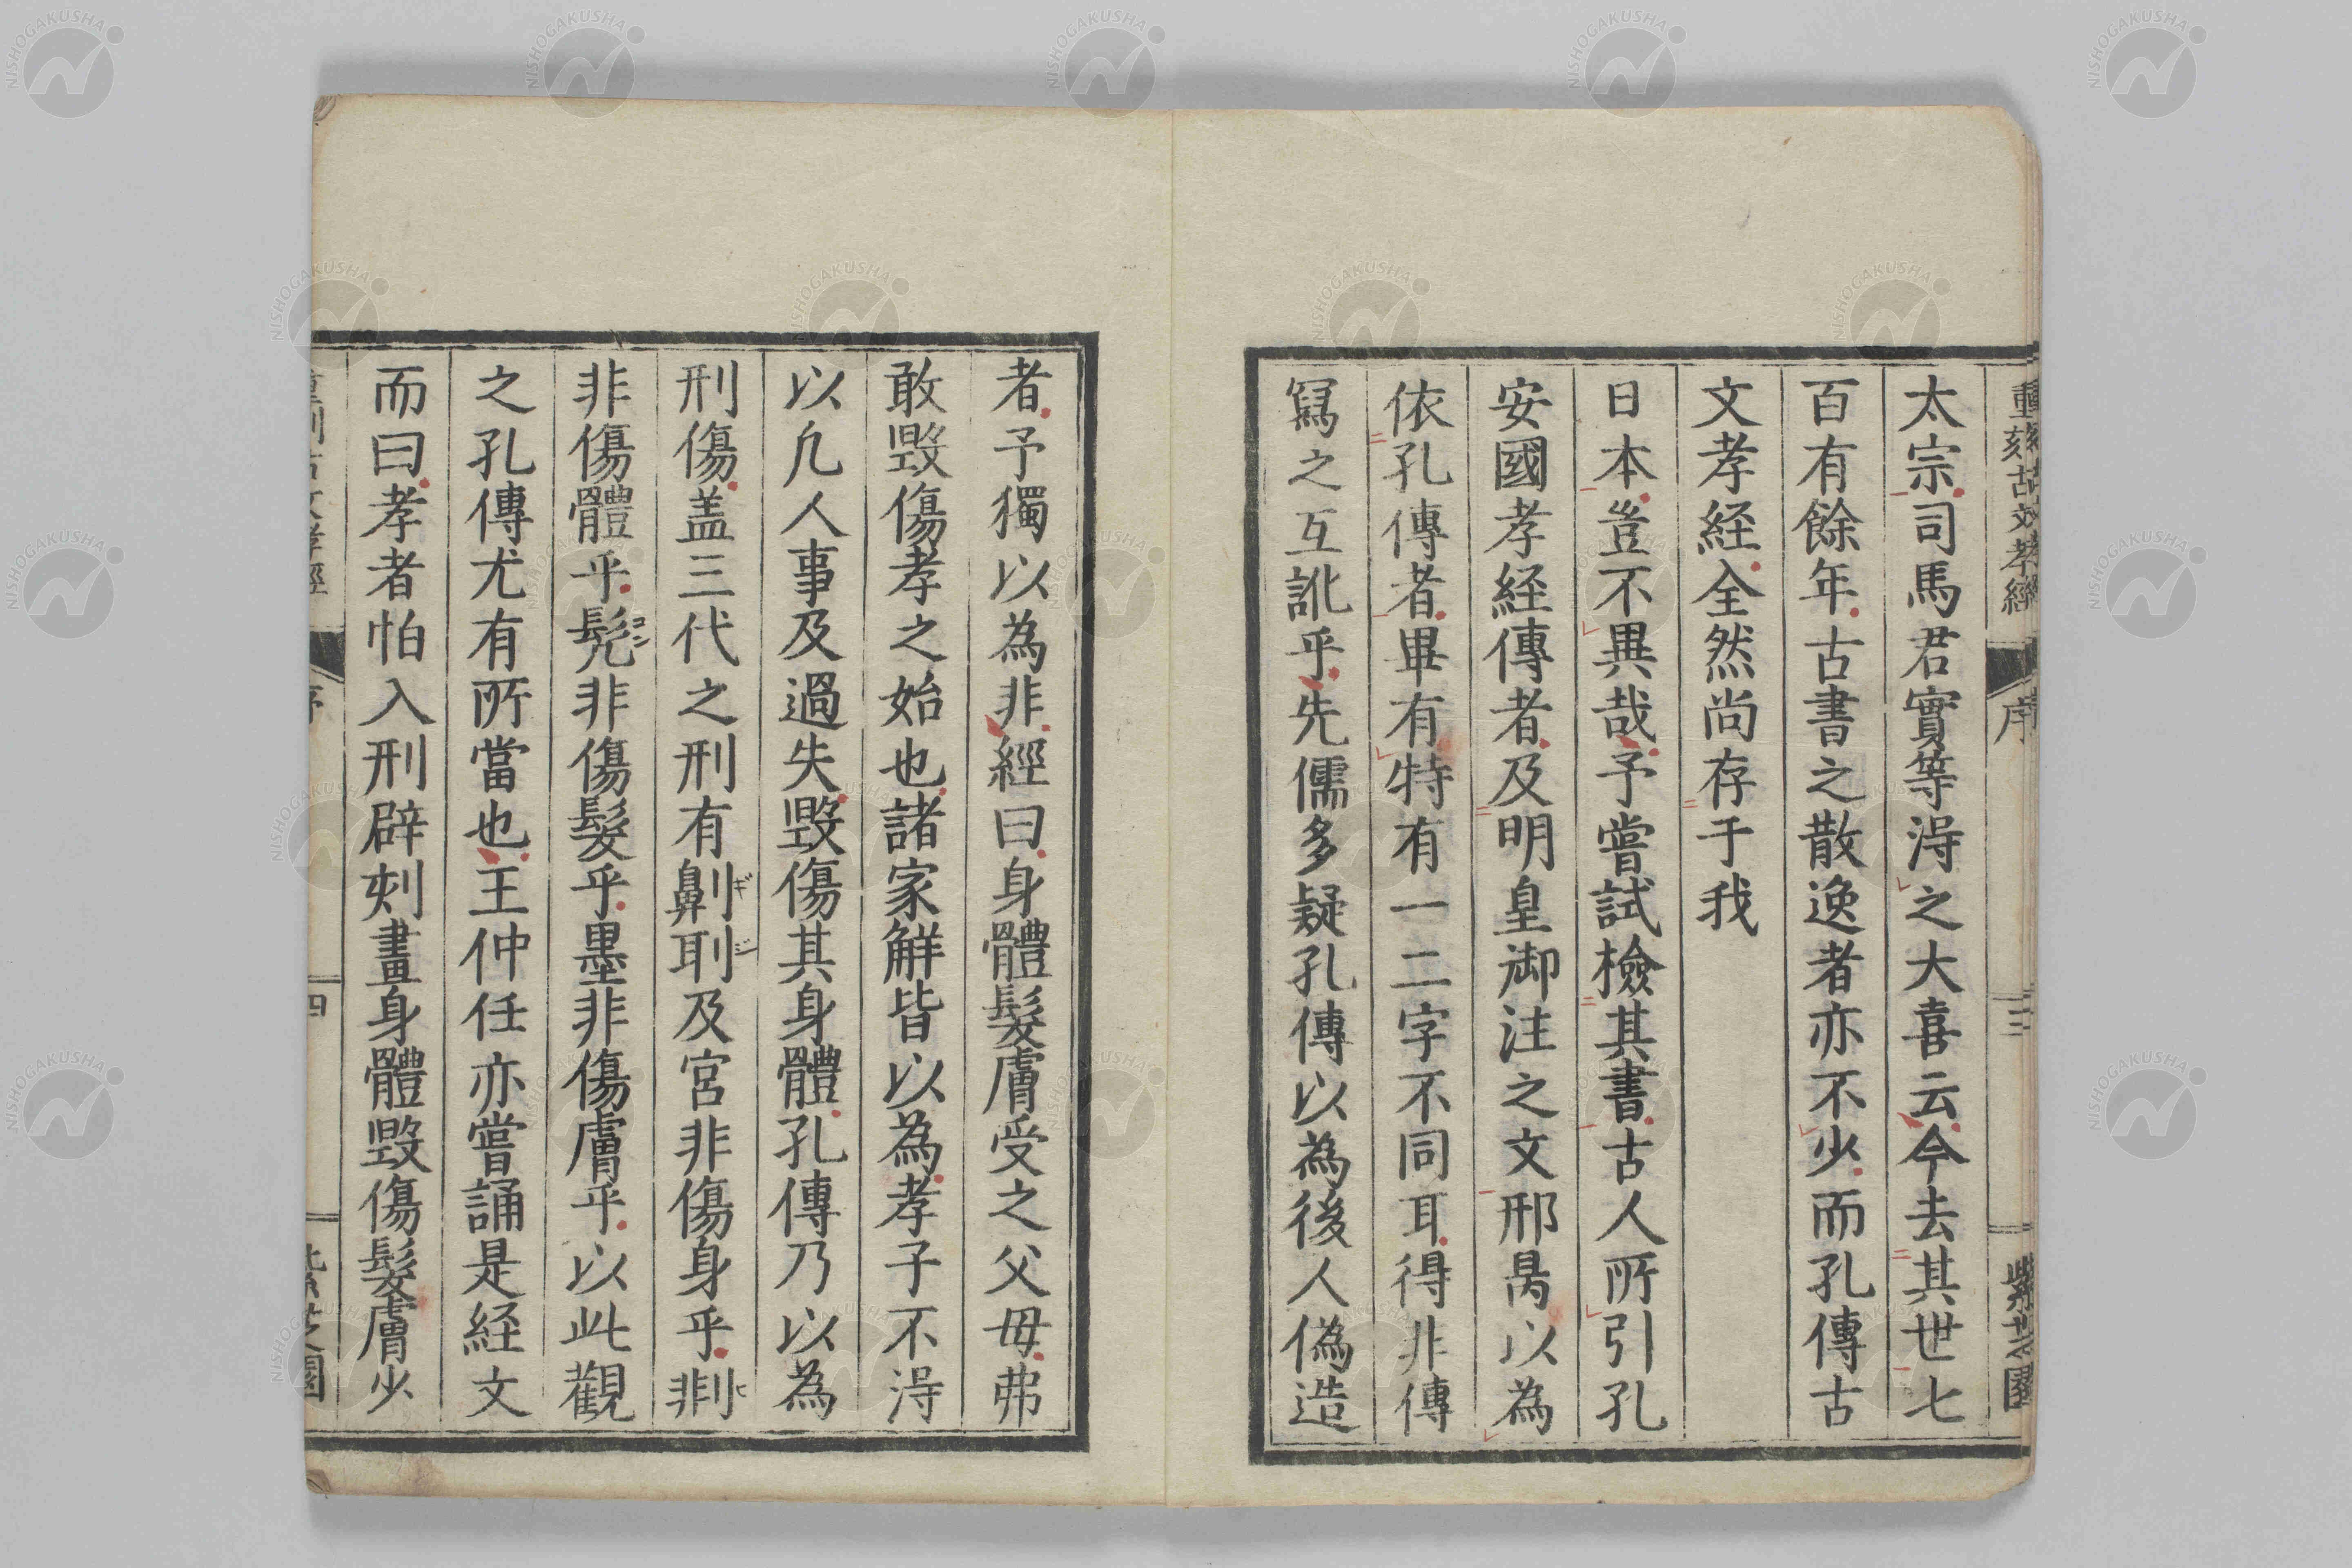 重刻古文孝經 序 三 紫芝園
太宗司馬君實等淂之大喜云今去其世七
百有餘年古書之散逸者亦不少而孔傳古
文孝経全然尚存于我
日本豈不異哉予嘗試檢其書古人所引孔
安國孝経傳者及明皇御注之文邢昺以為
依孔傳者畢有特有一二字不同耳得非傳
寫之互訛乎先儒多疑孔傳以為後人偽造
者予獨以為非經曰身體髮膚受之父母弗
敢毀傷孝之始也諸家解皆以為孝子不淂
以凡人事及過失毀傷其身體孔傳乃以為
刑傷盖三代之刑有劓刵及宮非傷身乎剕
非傷體乎髡非傷髮乎墨非傷膚乎以此觀
之孔傳尤有所當也王仲任亦嘗誦是経文
而曰孝者怕入刑辟刻畫身體毀傷髮膚少
重刻古文孝經 序 四 紫芝園
NISHOGAKUSHA